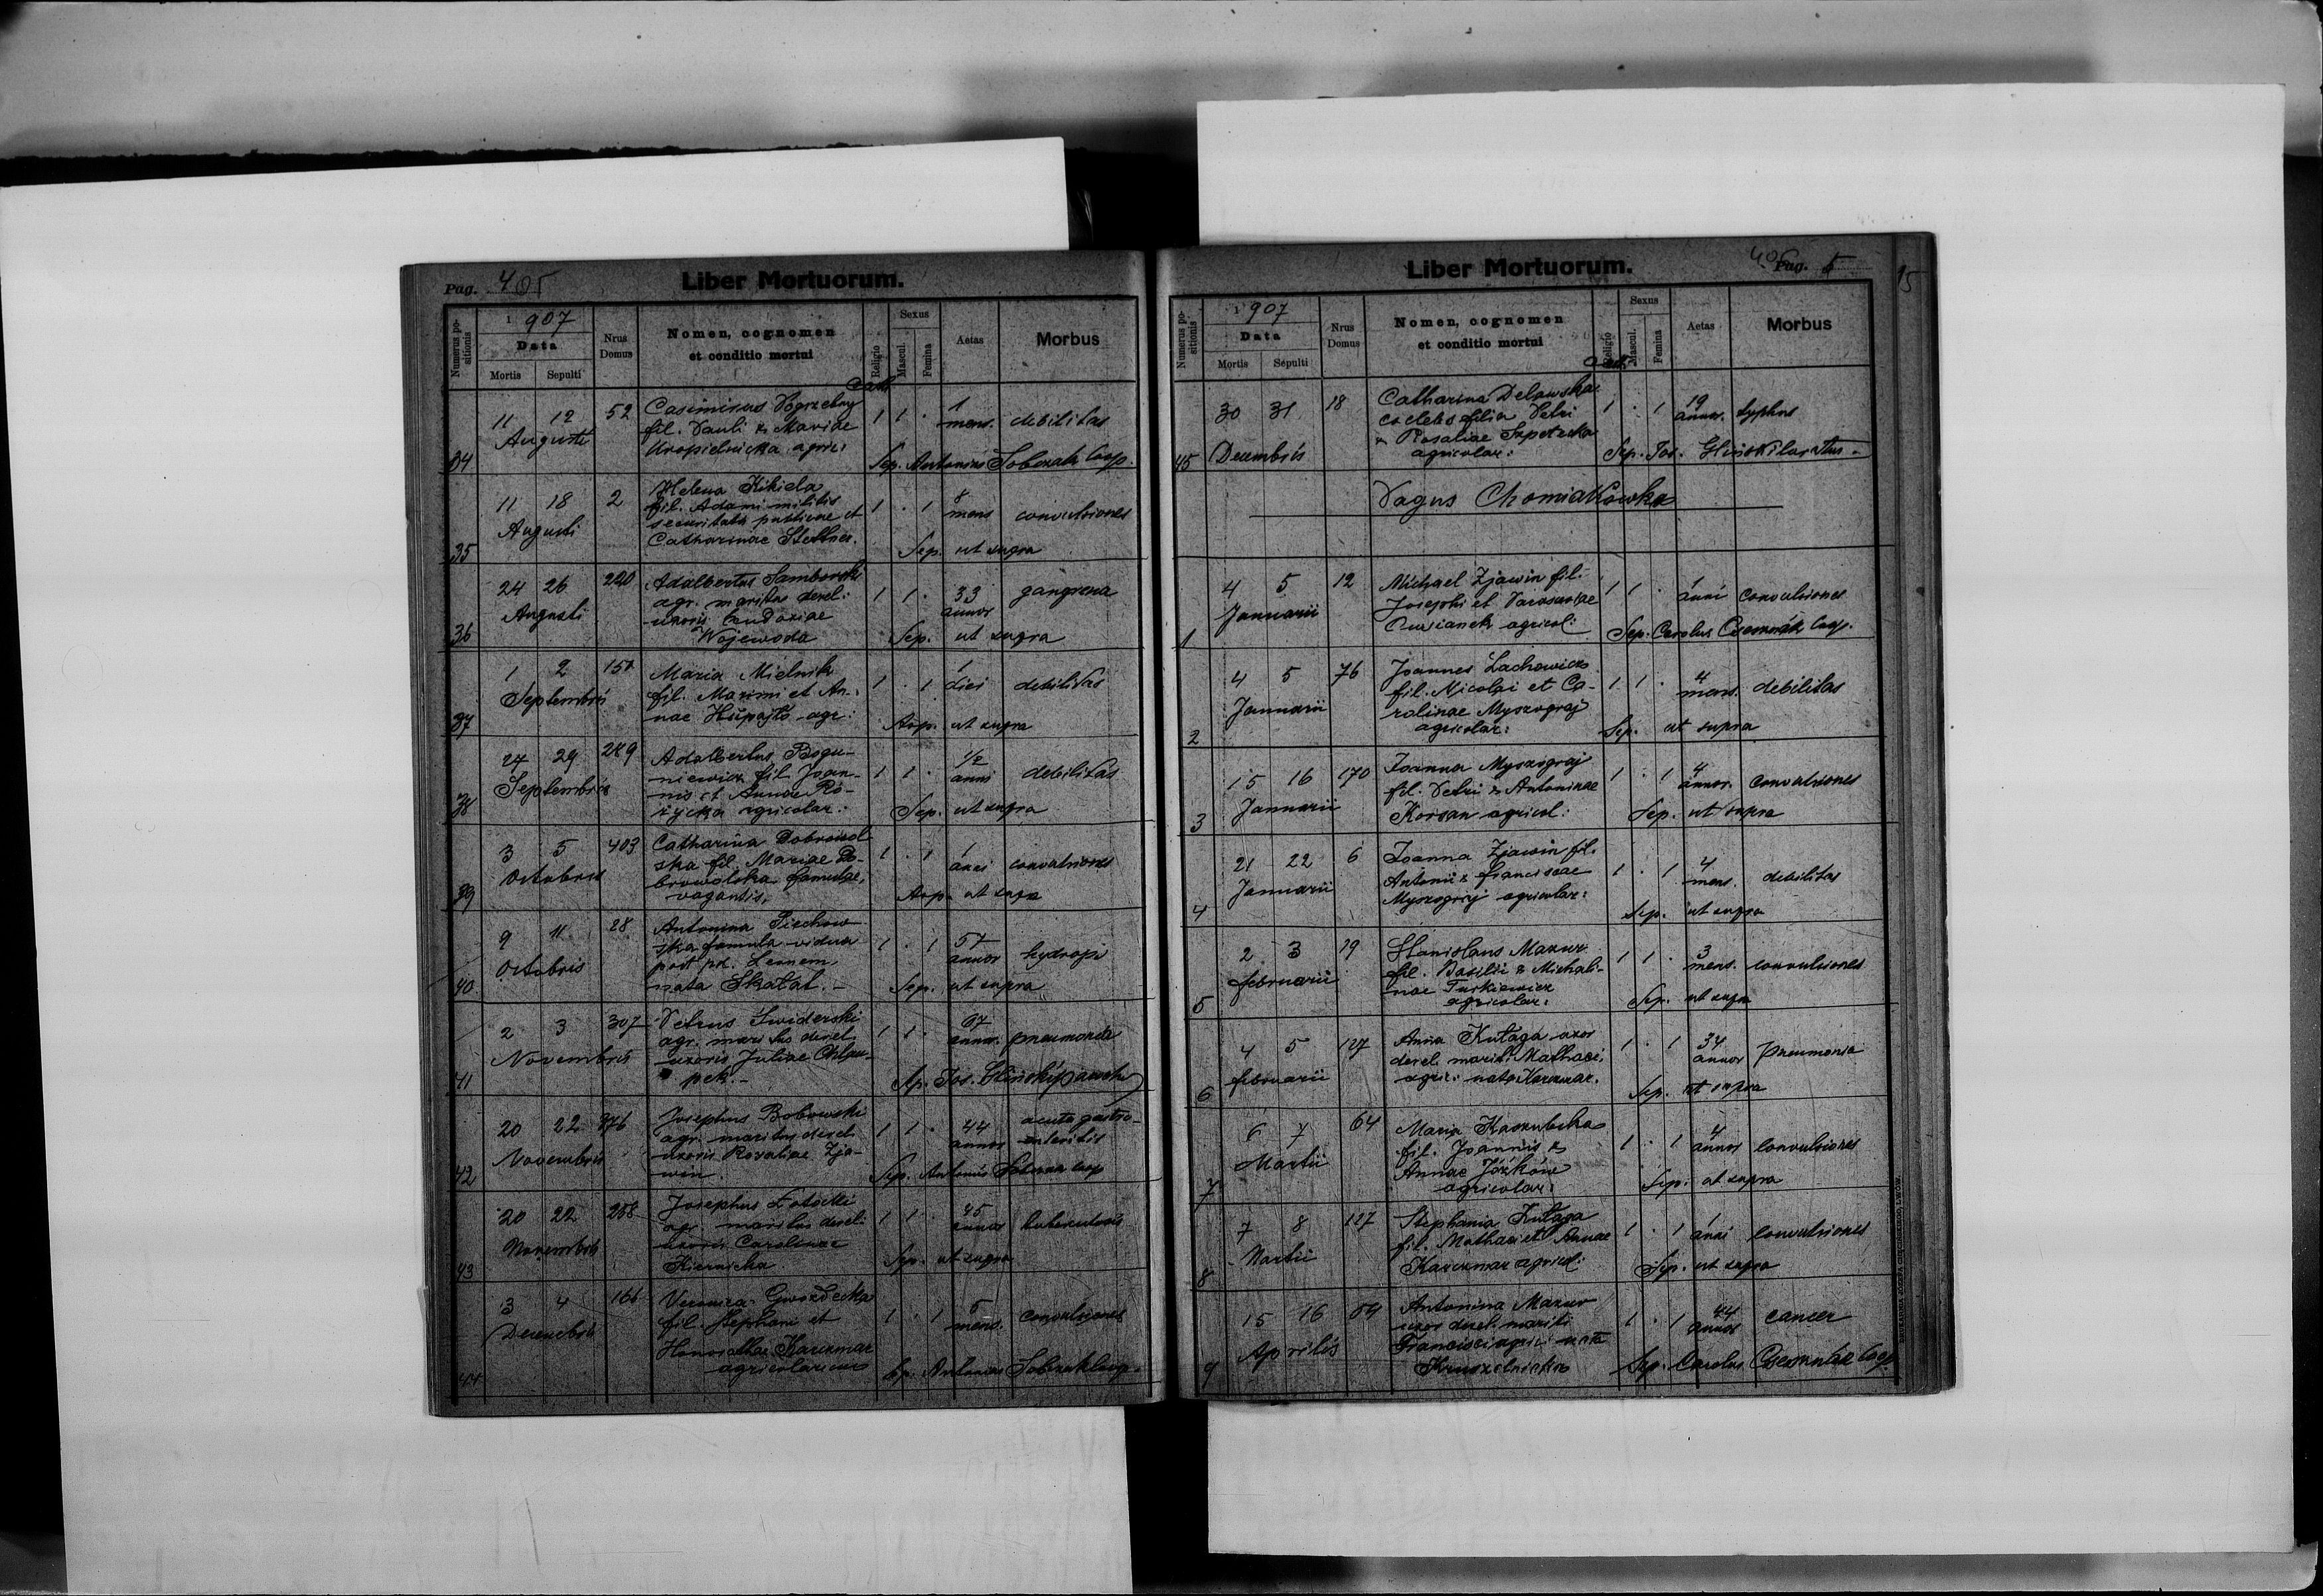 Pag. 405
Liber Mortuorum.
Numerus positionis
1907
Data
Mortis Sepulti
Nrus Domus
Nomen, cognomen
et conditio mortui
Religio
Sexus
Mascul. Femina
Aetas
Morbus
Cath
34
11 12 52
Augusti
Casimirus Pogrzebny
fil. Pauli & Mariae
Kropielnicka agric:
1 1 · 1 mens. debilitas
Sep. Antonius Sobczak Coop.
35
11 18 2
Augusti
Helena Kikiela
fil. Adami militis
securitatis publicae et
Catharinae
1 · 1 8 mens convulsiones
Sep. ut supra
36
24 26 220
Augusti
Adalbertus Samborski
agr. maritus derel:
uxoris Eudoxiae
Wojewoda
1 1 · 33 annor gangrena
Sep. ut supra
37
1 2 151
Septembris
Maria Mielnik
fil. Maximi et An-
nae agr:
1 · 1 1 diei debilitas
Sep. ut supra
38
27 29 249
Septembris
Adalbertus Bogu-
niewicz fil Joan-
nis et Annae Ró-
życka agricolar:
1 1 · 1/2 anni debilitas
Sep. ut supra
39
3 5 403
Octobris
Catharina Dobrowol
ska fil. Mariae Do-
browolska famulae
vagantis.
1 · 1 1 anni convulsiones
Sep. ut supra
40
9 11 28
Octobris
Antonina Piechow
ska famula vidua
post
nata Skałat. -
1 · 1 57 annor hydrops
Sep. ut supra
41
2 3 307
Novembris
Petrus Swiderski
agr. maritus derel.
uxoris Juliae Chłpu-
pek. -
1 1 · 67 annor. pneumonia
Sep. Jos. Gliński parochus
42
20 22 376
Novembris
Josephus Bobowski
agr. maritus derel.
uxoris Rosaliae Zja-
win.
1 1 · 44 annor acuta gastro-
enteritis
Sep. Antonius coop
43
20 22 258
Novembris
Josephus Potocki
agr. maritus derel:
uxoris Carolinae
Kiernicka
1 1 · 45 annor tuberculosis
Sep. ut supra
44
3 4 166
Decembris
Veronica Gwozdecka
fil. Stephani et
Honorathae Karczmar
agricolarum
1 · 1 5 mens. convulsiones
Sep. Antonius Sobczak Coop.
Liber Mortuorum.
406 Pag. 5
15
Numerus positionis
1907
Data
Mortis Sepulti
Nrus Domus
Nomen, cognomen
et conditio mortui
Religio
Sexus
Mascul. Femina
Aetas
Morbus
45
30 31 18
Decembris
Catharina Delowska
coelebs filia Petri
& Rosaliae Szpetecka
agricolar:
1 · 1 19 annor. typhus
Sep. Jos. Gliński
Pagus Chomiakówka
1
4 5 12
Januarii
Michael Zjawin fil.
Josephi et Parascviae
Owsianek agricol:
1 1 · 1 anni convulsiones
Sep. Carolus Coop.
2
4 5 76
Januarii
Joannes Lachowicz
fil. Nicolai et Ca-
rolinae Myszograj
agricolar:
1 1 · 4 mens. debilitas
Sep. ut supra
3
15 16 170
Januarii
Joanna Myszograj
fil. Petri & Antoninae
Korsan agricol:
1 · 1 4 annor. convulsiones
Sep. ut supra
4
21 22 6
Januarii
Joanna Zjawin fil.
Antonii & Franciscae
Myszograj agricolar:
1 · 1 4 mens. debilitas
Sep. ut supra
5
2 3 19
Februarii
Stanislaus Mazur
fil. Basilii & Michali-
nae Turkiewicz
agricolar:
1 1 · 3 mens. convulsiones
Sep. ut supra
6
4 5 127
Februarii
Anna Kułaga uxor
derel. mariti Mathaei
agric: nata Karczmar.
1 · 1 34 annor pneumonia
Sep. ut supra
7
6 7 64
Martii
Maria Kaszubska
fil. Joannis &
Annae Józków
agricolar:
1 · 1 4 annor convulsiones
Sep. ut supra
8
7 8 127
Martii
Stephania Kułaga
fil. Mathaei et Annae
Karczmar agricol:
1 · 1 1 anni convulsiones
Sep. ut supra
9
15 16 54
Aprilis
Antonina Mazur
uxor derel. mariti
Francisci agric: nata
Kruszelnicka
1 · 1 44 annor cancer
Sep. Carolus Coop